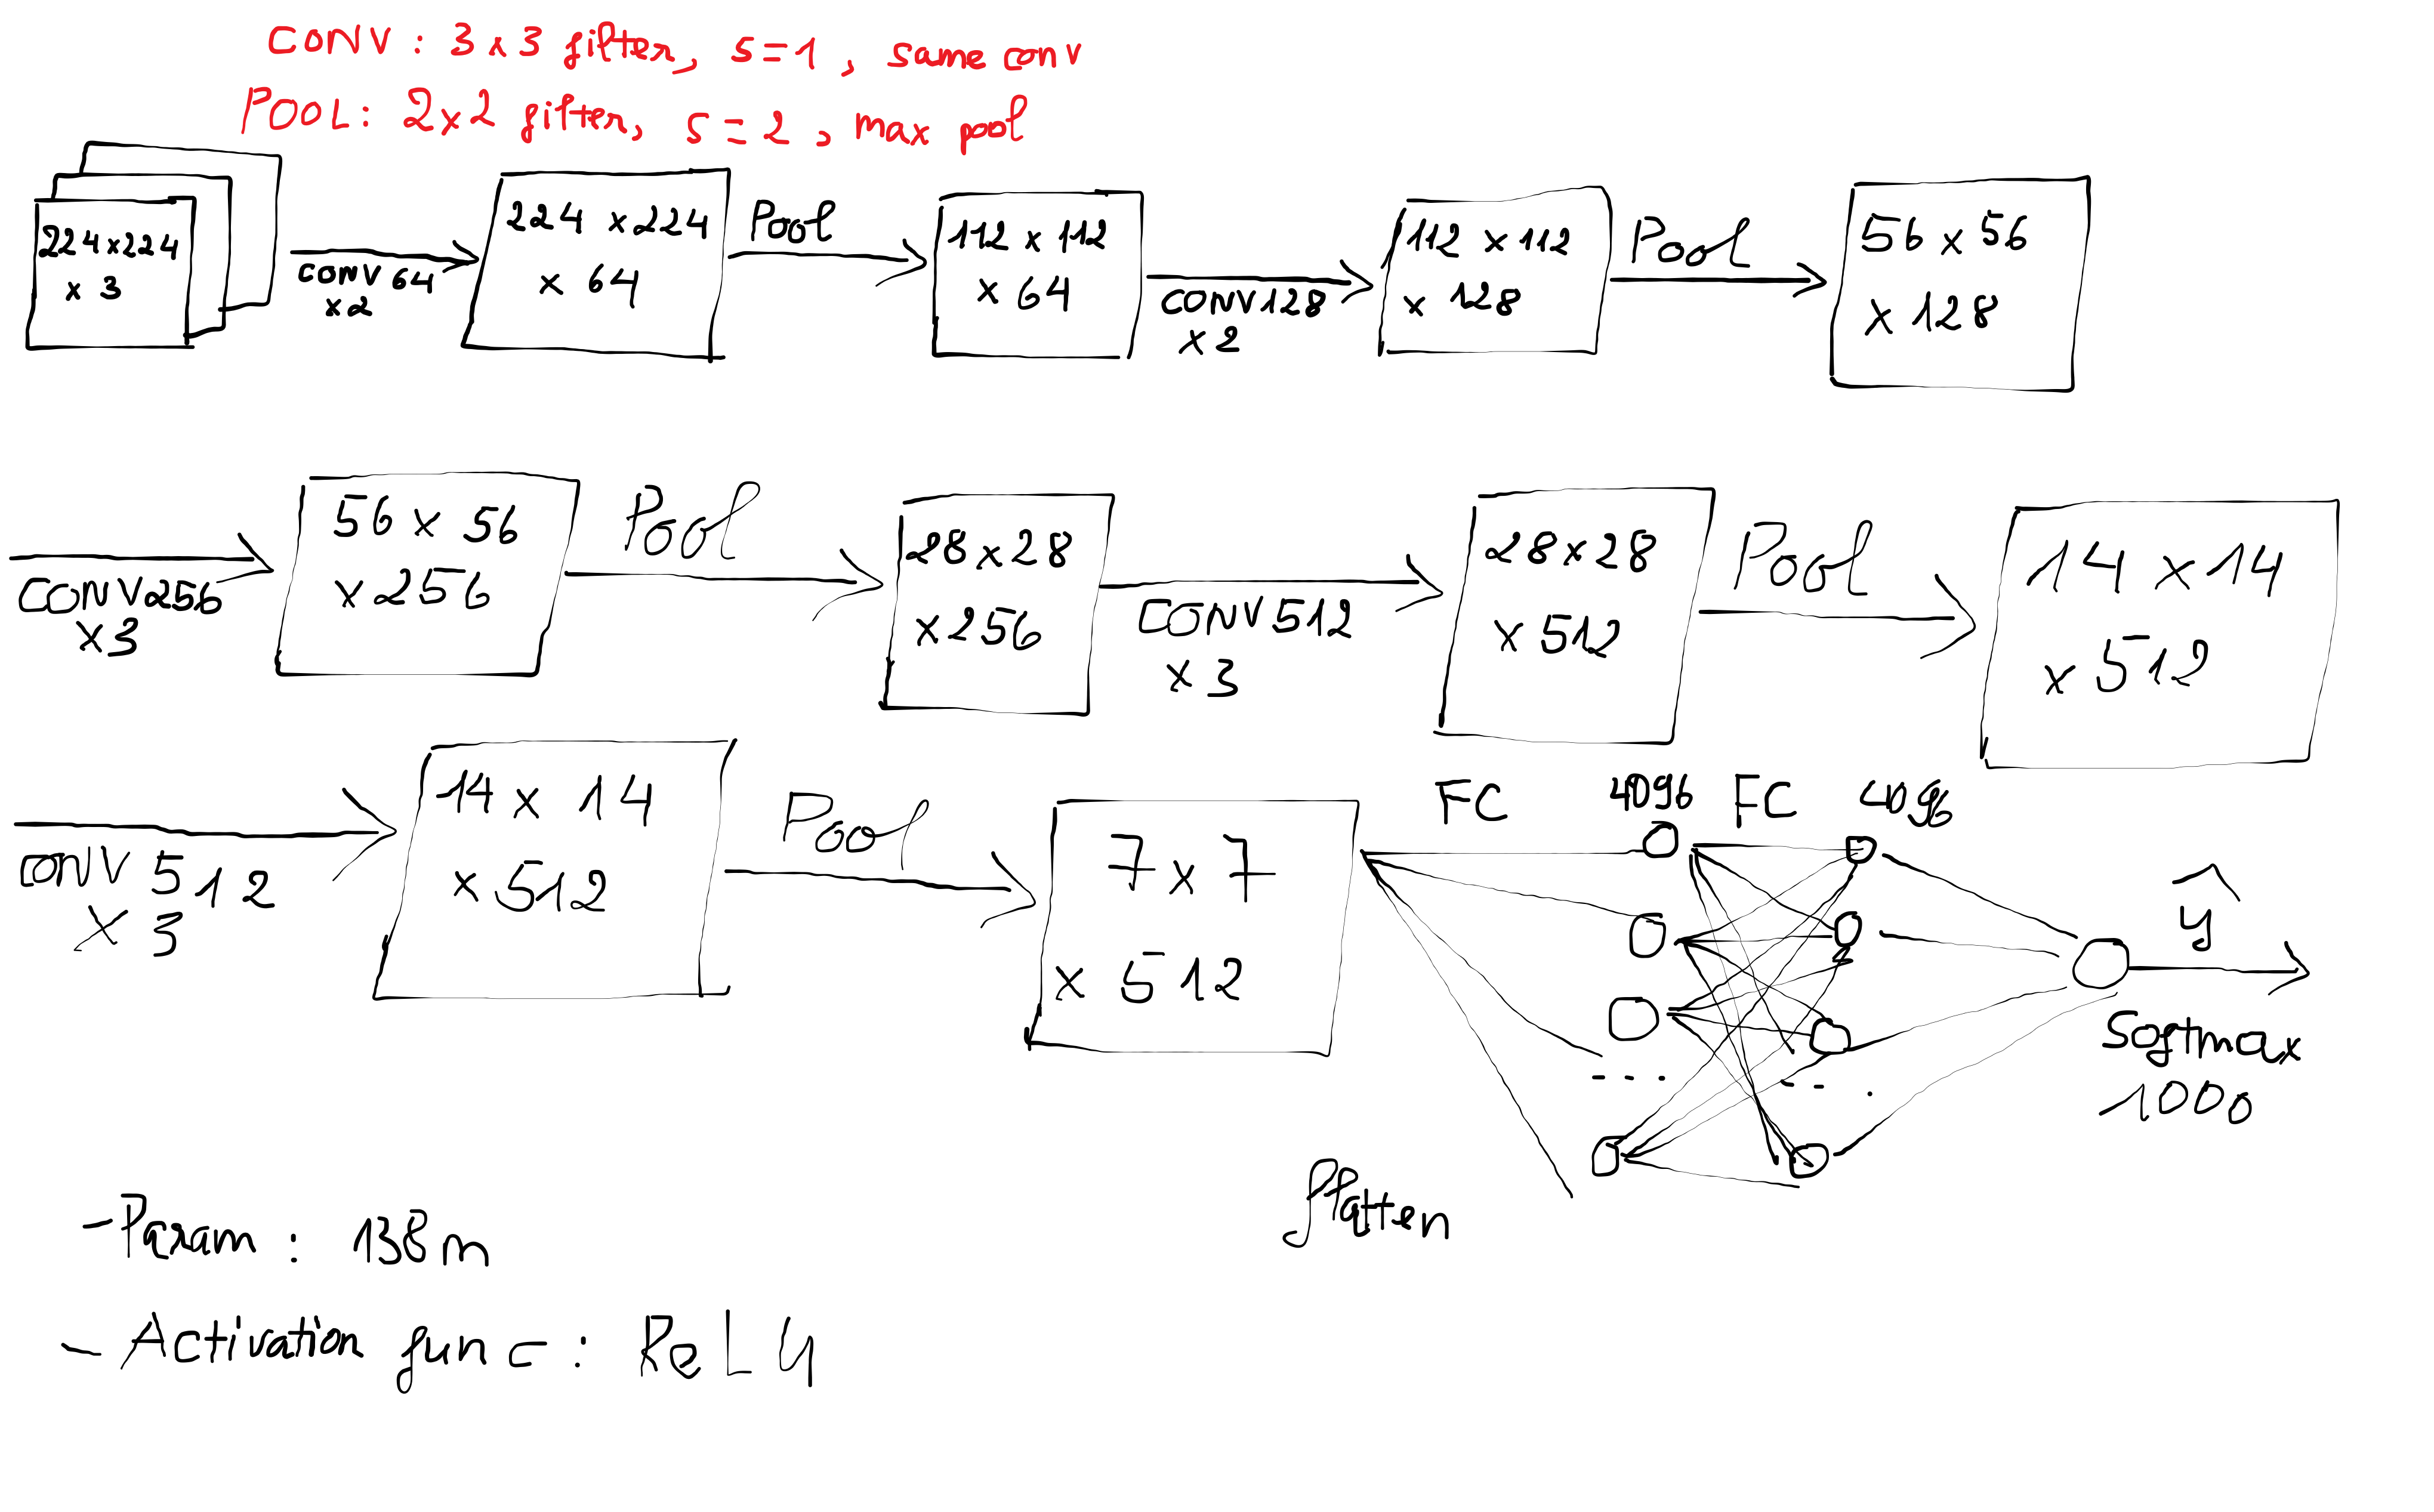 CONV : 3x3 filter, s=1, same conv
POOL: 2x2 filter, s=2, max pool
224x224
x 3
CONV 64
x2
224 x224
x 64
Pool
112 x 112
x 64
CONV128
x2
112 x 112
x 128
Pool
56 x 56
x 128
CONV256
x3
56 x 56
x 256
Pool
28x28
x256
CONV 512
x 3
28x28
x 512
Pool
14 x 14
x 512
CONV 512
x 3
14 x 14
x 512
Pool
7x7
x 512
FC
4096
FC
4096
...
...
ŷ
Softmax
1000
flatten
- Param : 138m
- Activation func : ReLU